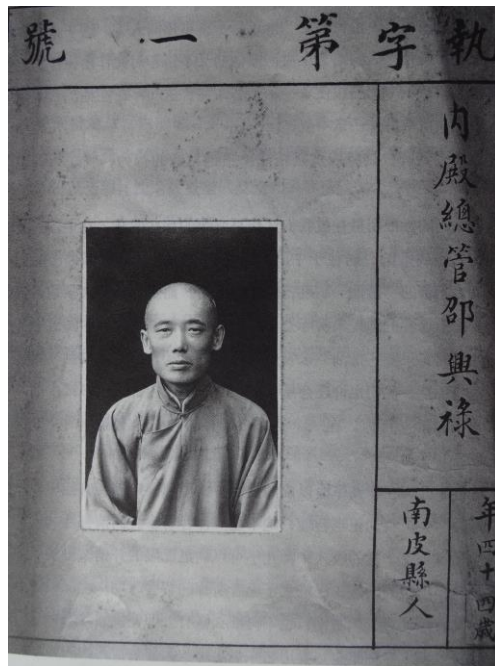 執字第一號
內殿總管邵興祿
年四十四歲
南皮縣人